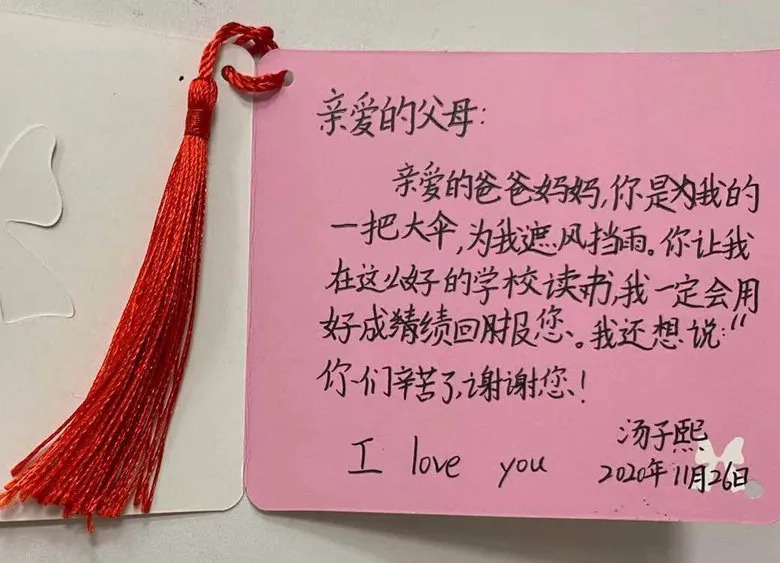 亲爱的父母:
亲爱的爸爸妈妈,你是为我的
一把大伞,为我遮风挡雨。你让我
在这么好的学校读书,我一定会用
好成绩回报您。我还想说:“
你们辛苦了,谢谢您!
I love you
汤子熙
2020年11月26日